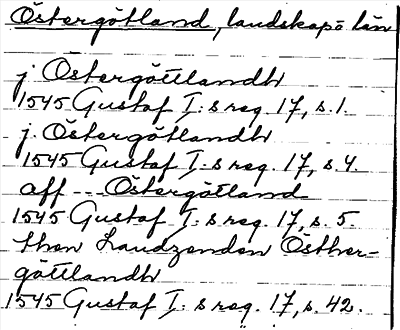 Östergötland, landskap o län
j. Östergöttlandh
1545 Gustaf I:s reg. 17, s. 1.
j. Östergötlandh
1545 Gustaf I:s reg. 17, s. 4.
aff --- Östergötland
1545 Gustaf I:s reg. 17, s. 5.
then Landzenden Östher-
göttlandh
1545 Gustaf I:s reg. 17, s. 42.